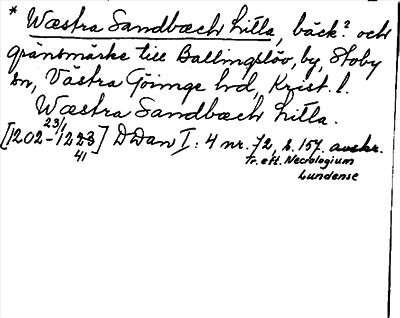 * Wæstra Sandbæch litla, bäck? och
gränsmärke till Ballingslöv, by, Stoby
sn, Västra Göinge hd, Krist. l.
Wæstra Sandbæch litla.
[1202-23/1 1223] DDan I: 4 nr. 72, s. 157. avskr.
41 tr. eft. Necrologium
Lundense